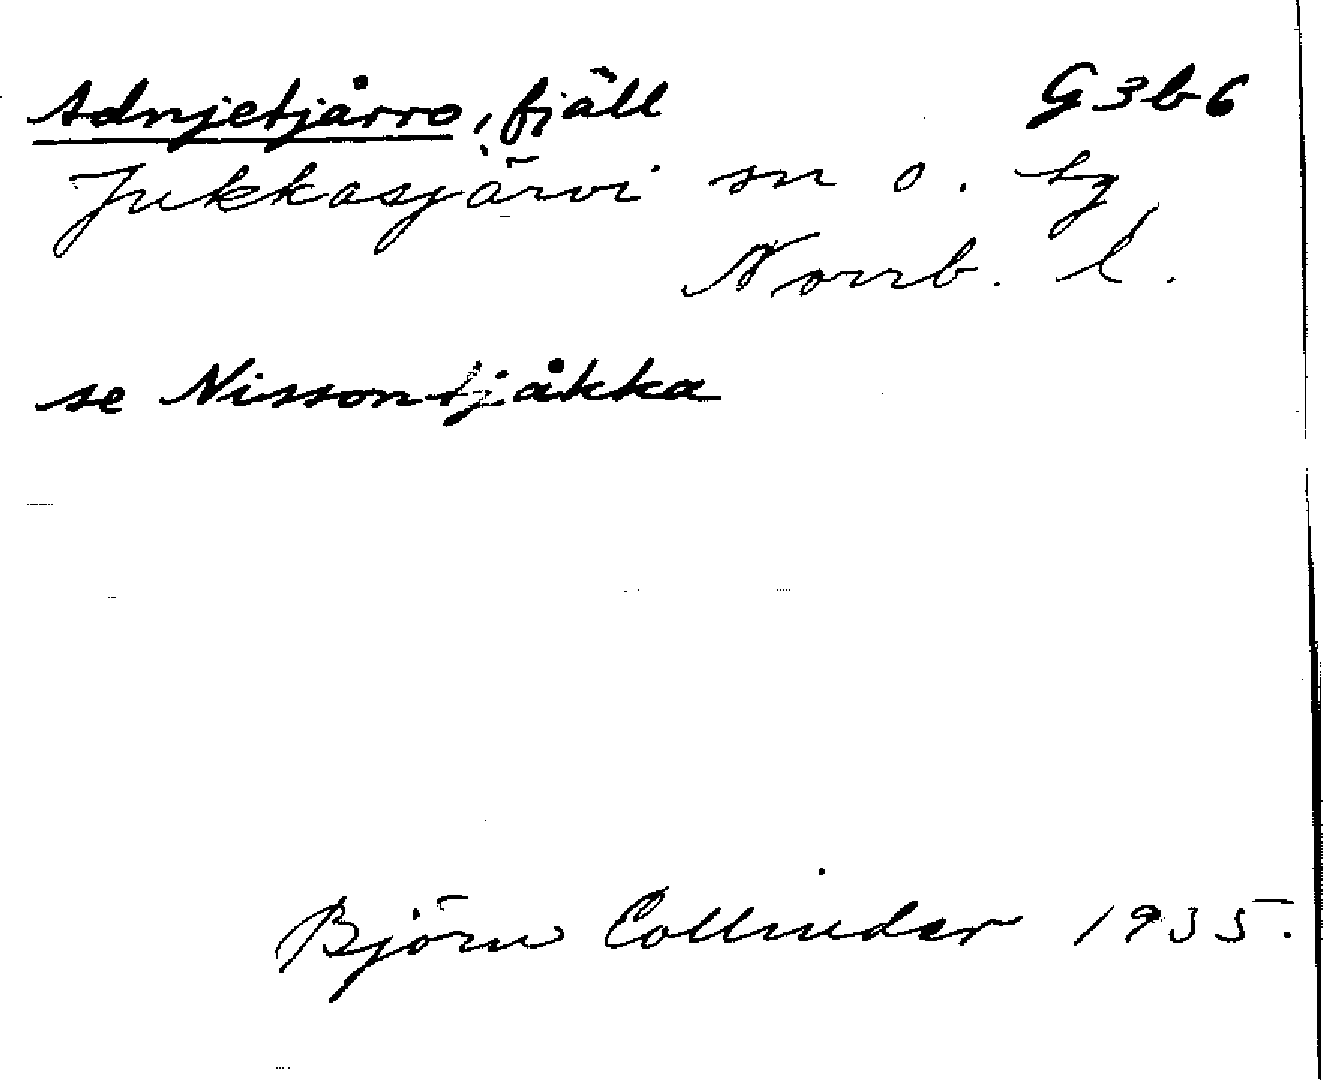 Adnjetjårro, fjäll G3b6
Jukkasjärvi sn o. tg
Norrb. l.
se Nissontjåkka
Björn Collinder 1935.